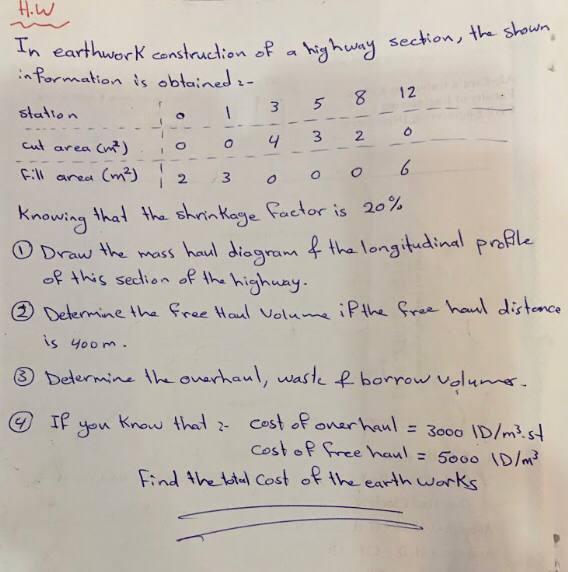 H.W
In earthwork construction of a highway section, the shown
information is obtained :-
station 0 1 3 5 8 12
cut area (m²) 0 0 4 3 2 0
Fill area (m²) 2 3 0 0 0 6
Knowing that the shrinkage factor is 20%
① Draw the mass haul diagram & the longitudinal profile
of this section of the highway.
② Determine the free Haul Volume if the free haul distance
is 400 m.
③ Determine the overhaul, waste & borrow volumes.
④ If you know that :- cost of overhaul = 3000 ID/m³.st
cost of free haul = 5000 ID/m³
Find the total cost of the earth works